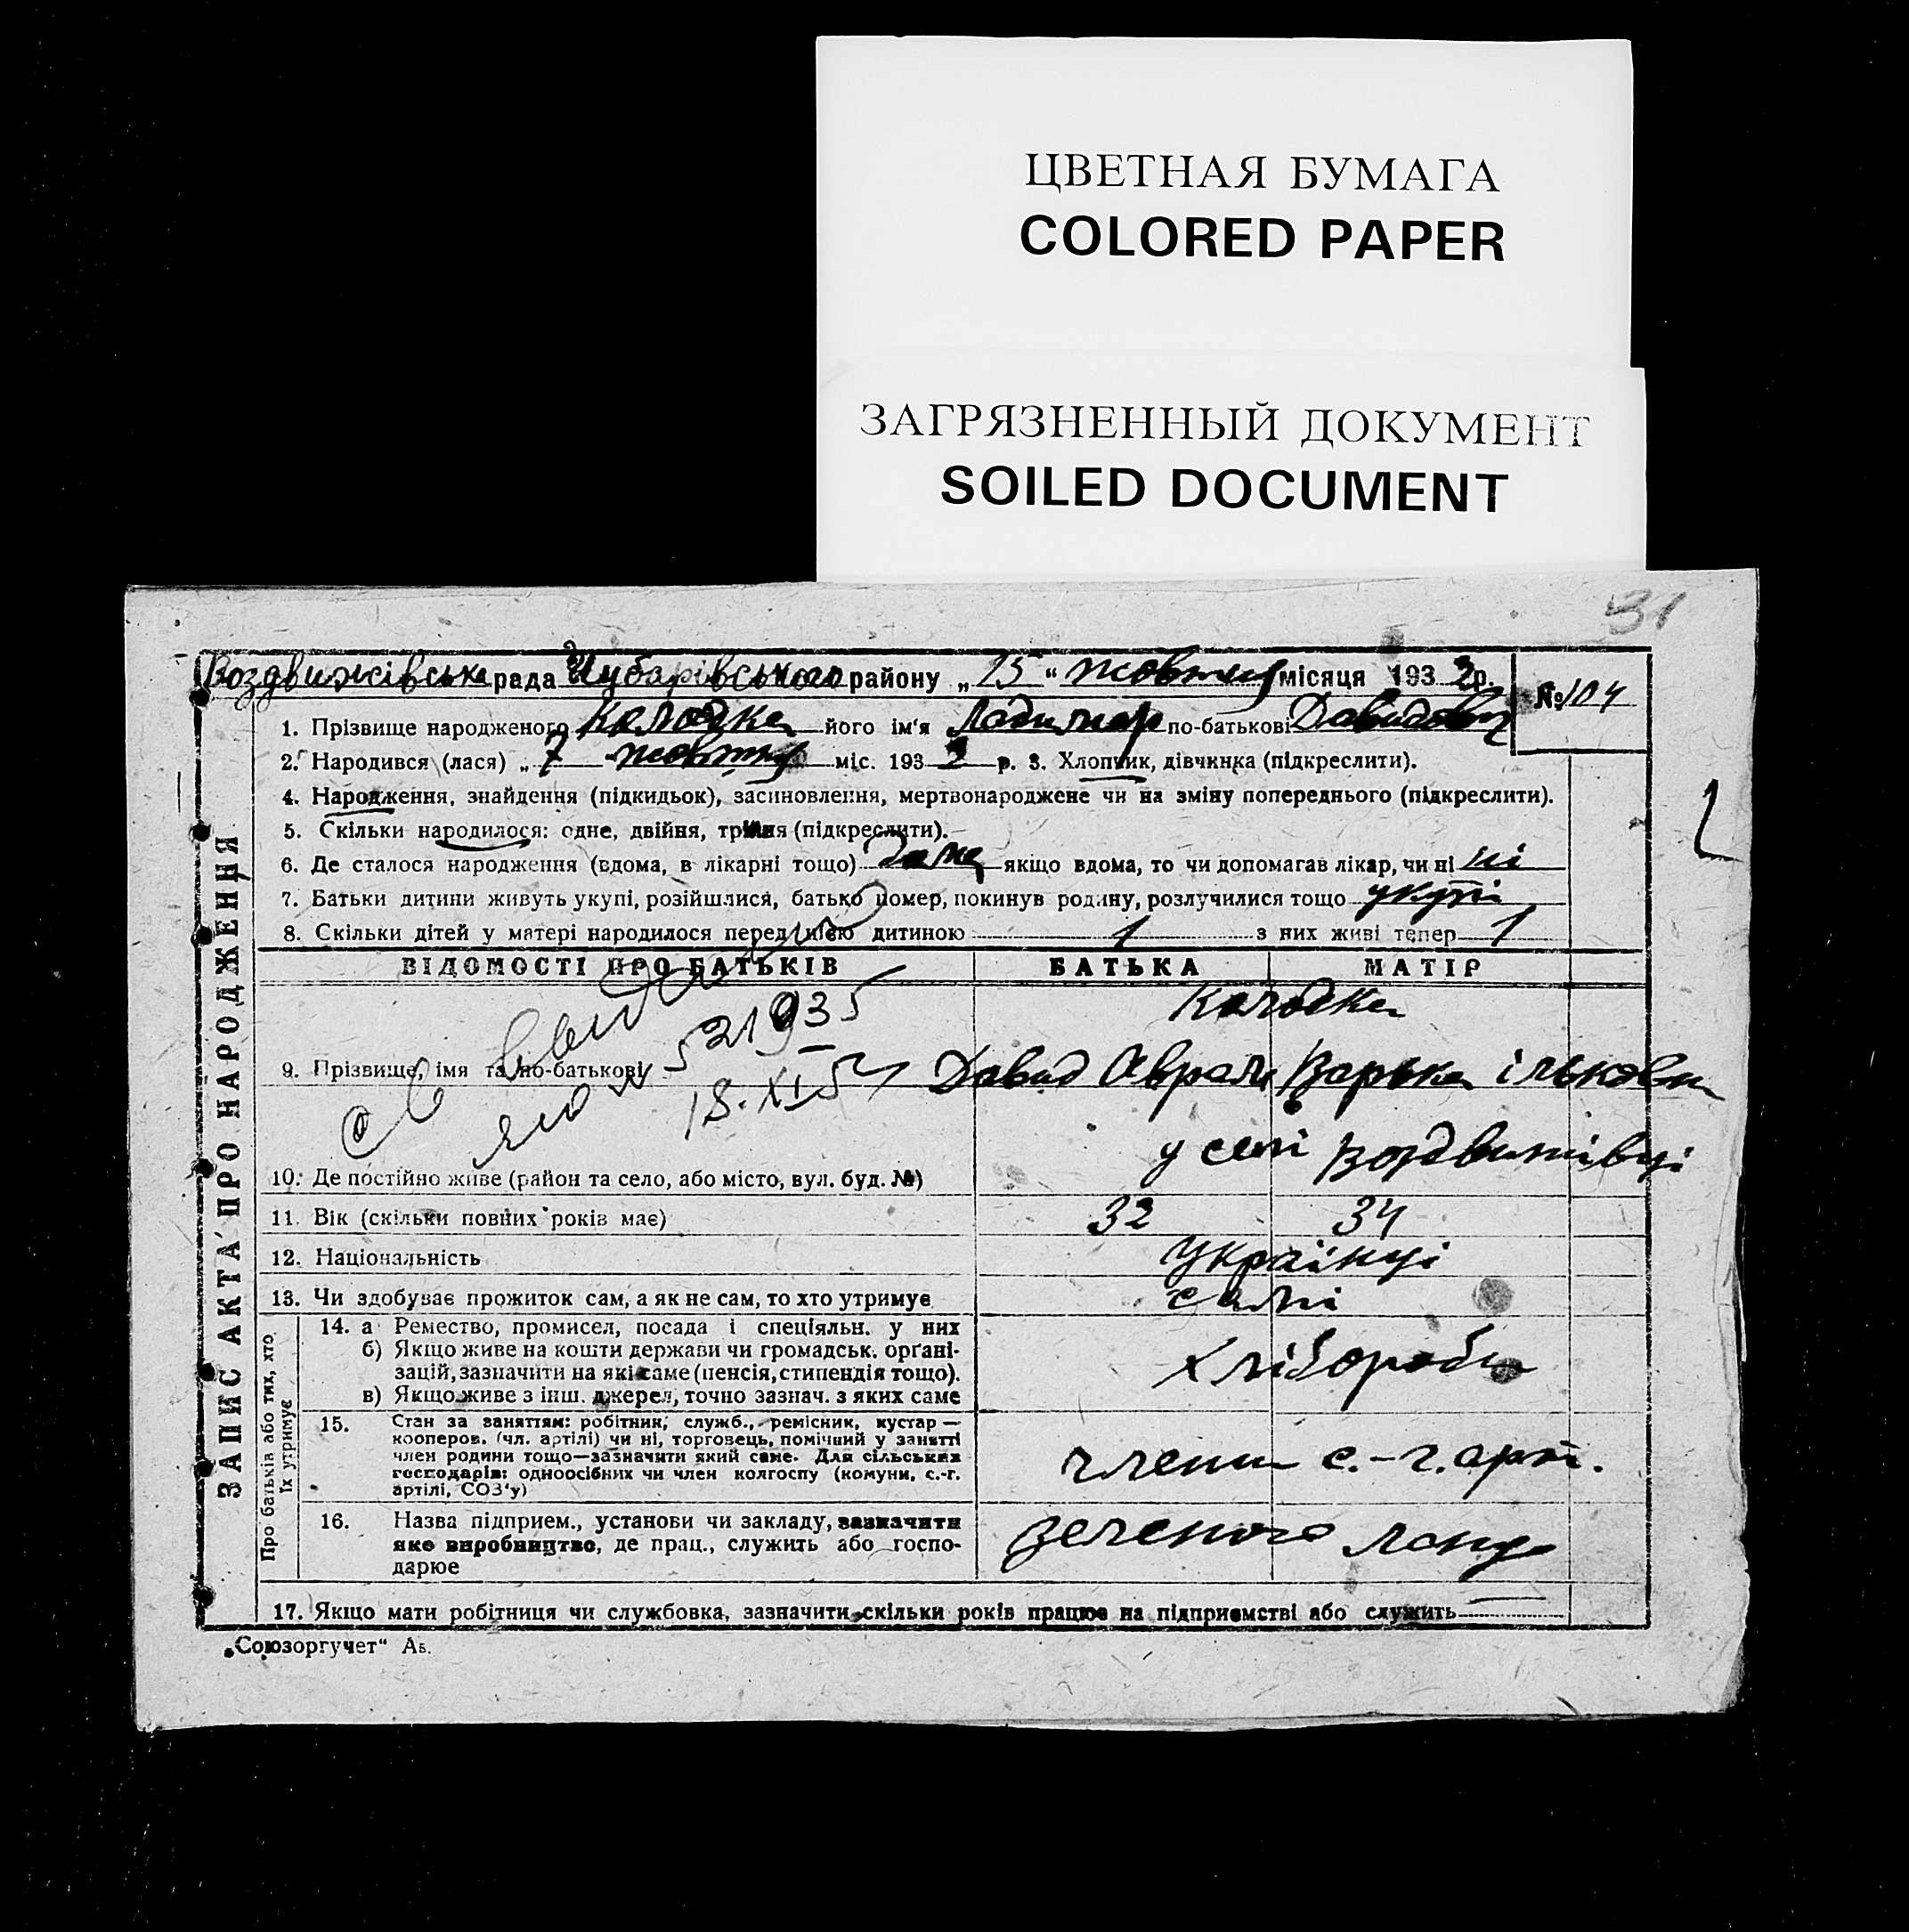 ЦВЕТНАЯ БУМАГА
COLORED PAPER
ЗАГРЯЗНЕННЫЙ ДОКУМЕНТ
SOILED DOCUMENT
31
Воздвижівська рада Чубарівського району „ 25 “ жовтня місяця 193 2 р.
№ 104
1. Прізвище народженого Колодка його ім'я Ладимир по-батькові Давидович
2. Народився (лася) „ 7 жовтня міс. 193 2 р. 3. Хлопчик, дівчинка (підкреслити).
4. Народження, знайдення (підкидьок), засиновлення, мертвонароджене чи на зміну попереднього (підкреслити).
5. Скільки народилося: одне, двійня, трійня (підкреслити).
6. Де сталося народження (вдома, в лікарні тощо) дома якщо вдома, то чи допомагав лікар, чи ні ні
7. Батьки дитини живуть укупі, розійшлися, батько помер, покинув родину, розлучилися тощо укупі
8. Скільки дітей у матері народилося перед цією дитиною 1 з них живі тепер 1
ЗАПИС АКТА ПРО НАРОДЖЕННЯ
ВІДОМОСТІ ПРО БАТЬКІВ БАТЬКА МАТІР
Колодка
9. Прізвище, імя та по-батькові Давид Аврам Варька ількова
св
521935
18.XI 52
у селі Воздвижівці
10. Де постійно живе (район та село, або місто, вул. буд. №)
11. Вік (скільки повних років має) 32 34
12. Національність українці
13. Чи здобуває прожиток сам, а як не сам, то хто утримує самі
Про батьків або тих, хто їх утримує
14. а Ремество, промисел, посада і спеціяльн. у них
б) Якщо живе на кошти держави чи громадськ. органі-
зацій, зазначити на які саме (пенсія, стипендія тощо).
в) Якщо живе з інш. джерел, точно зазнач. з яких саме
хлібороби
15. Стан за заняттям: робітник, служб., ремісник, кустар —
кооперов. (чл. артілі) чи ні, торговець, помічний у занятті
член родини тощо—зазначити який саме. Для сільських
господарів: одноосібних чи член колгоспу (комуни, с.-г.
артілі, СОЗ'у)
члени с.-г. арт.
16. Назва підприєм., установи чи закладу, зазначити
яке виробництво, де прац., служить або госпо-
дарює
зеленого лану
17. Якщо мати робітниця чи службовка, зазначити скільки років працює на підприємстві або служить
„Союзоргучет“ Аб.